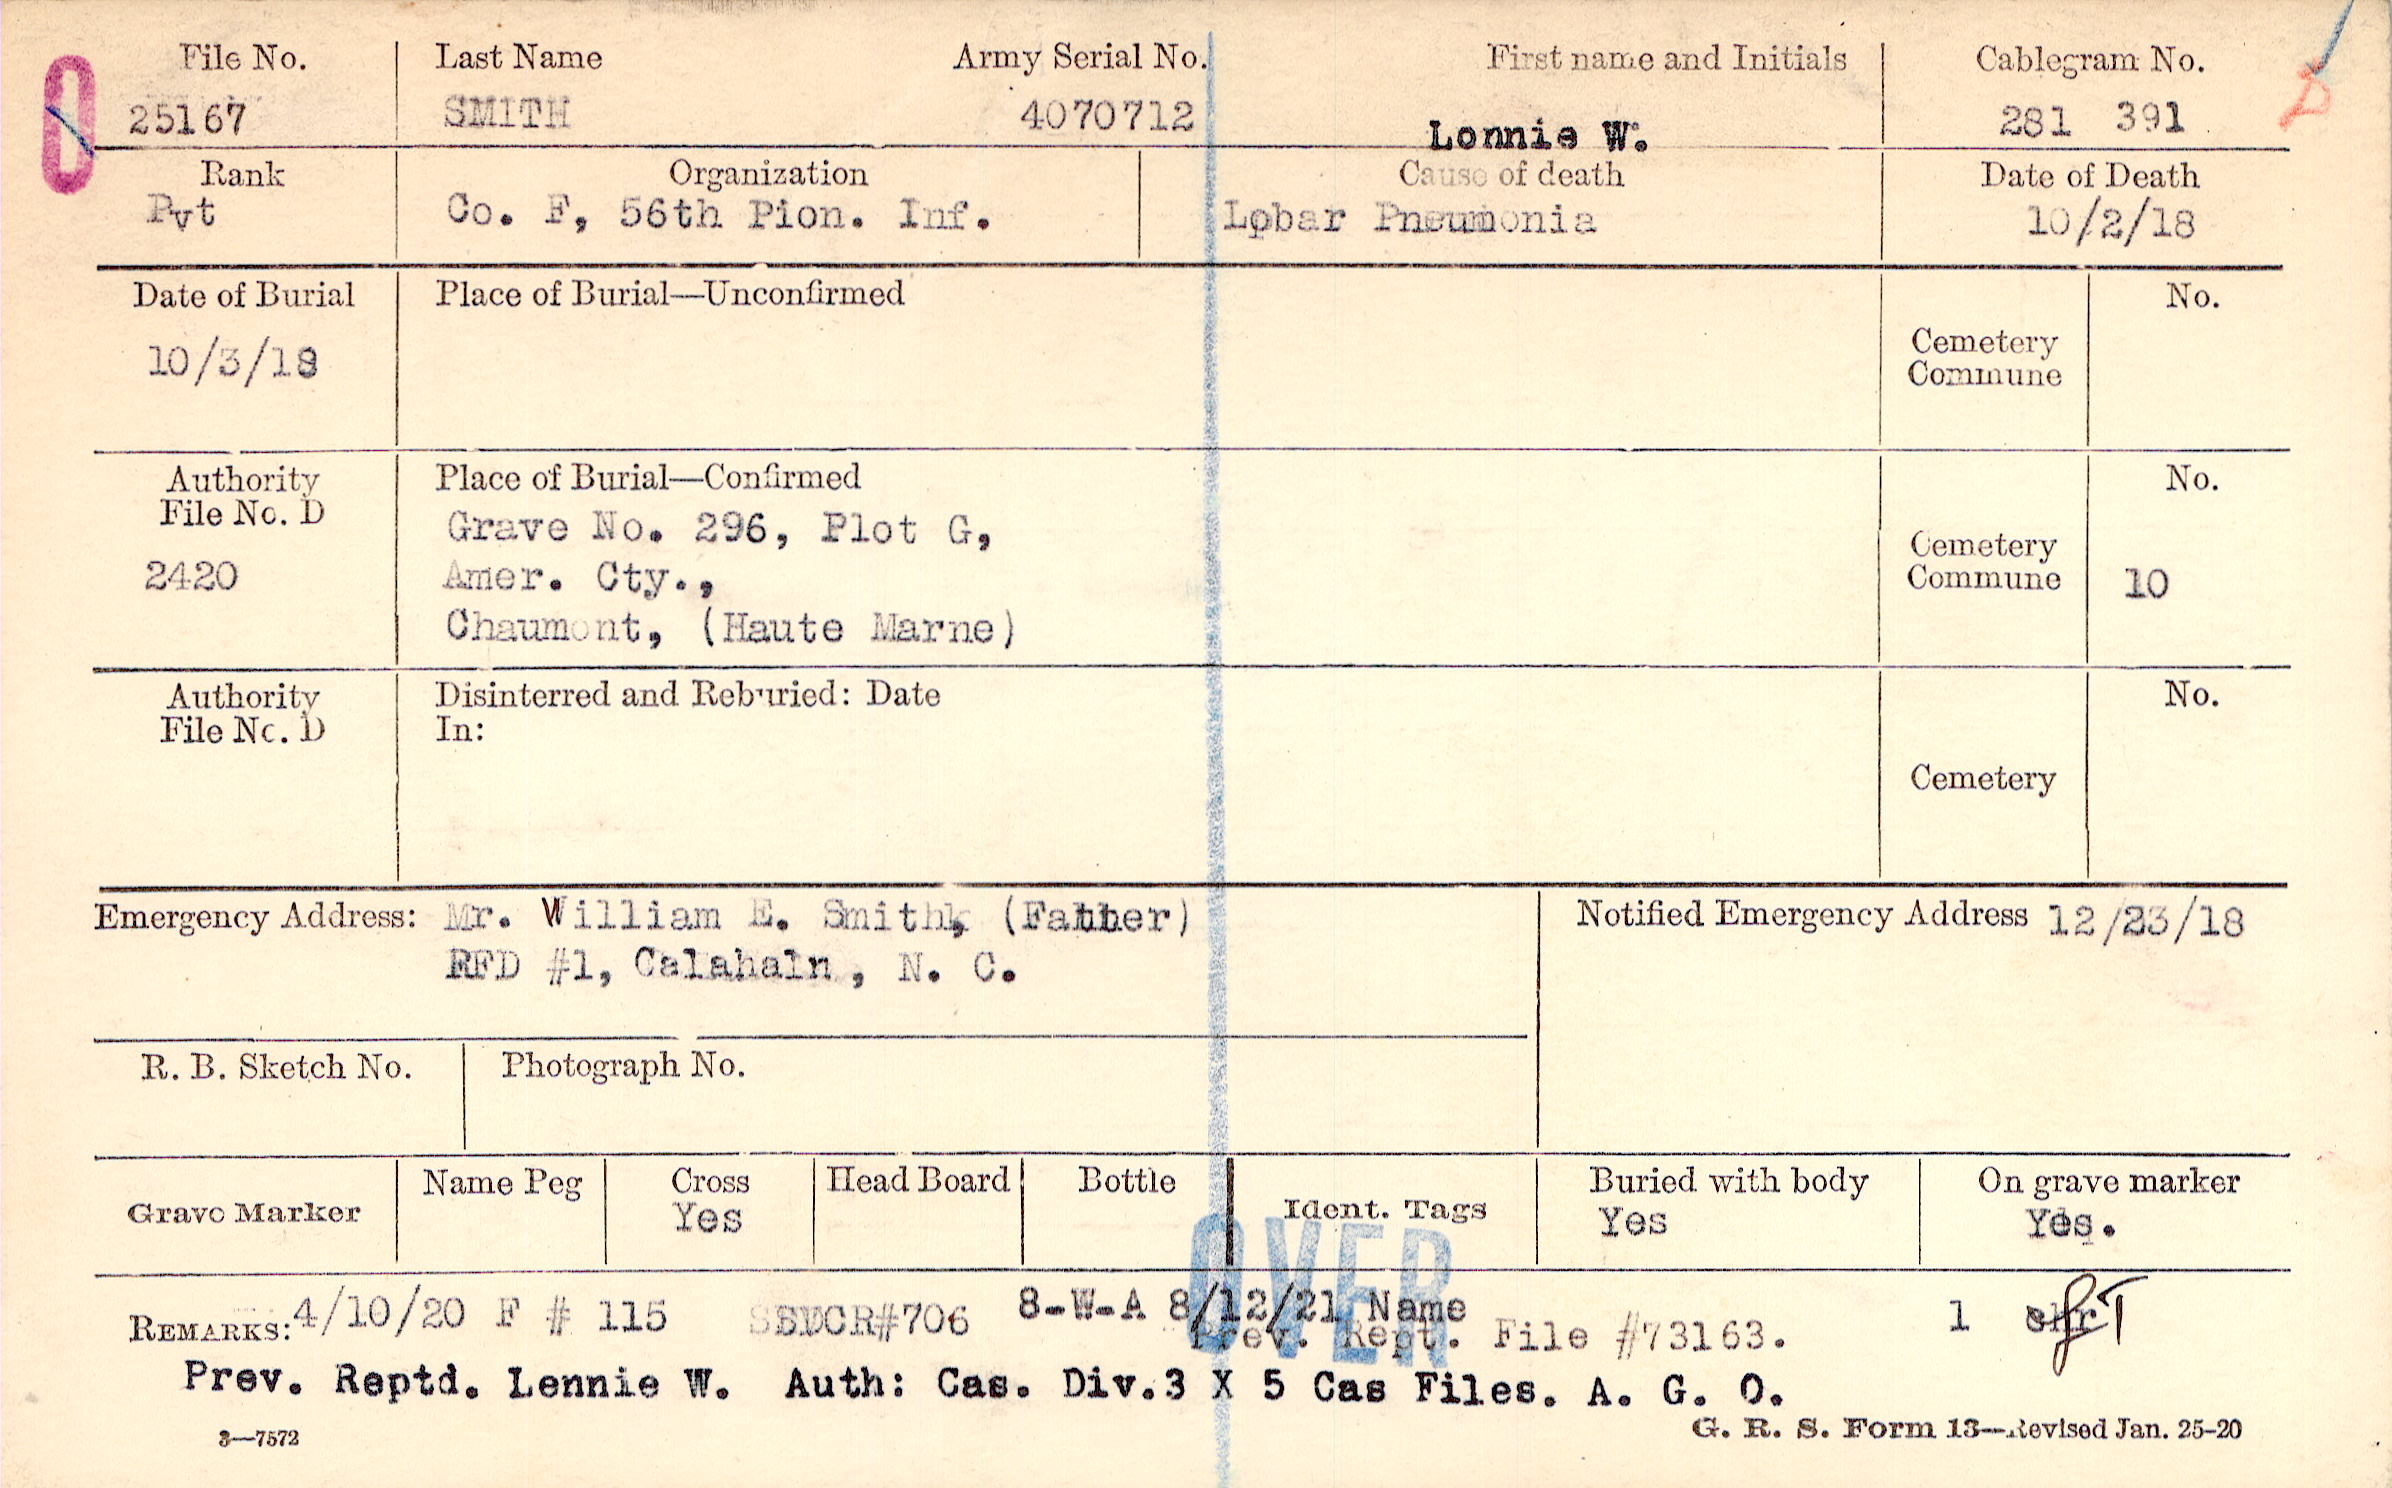 File No. Last Name Army Serial No. First name and Initials Cablegram No.
25167 SMITH 4070712 Lonnie W. 281 391
Rank Organization Cause of death Date of Death
Pvt Co. F, 56th Pion. Inf. Lobar Pneumonia 10/2/18
Date of Burial Place of Burial—Unconfirmed No.
10/3/18 Cemetery
Commune
Authority Place of Burial—Confirmed No.
File No. D Grave No. 296, Plot G,
2420 Amer. Cty., Cemetery
Commune 10
Chaumont, (Haute Marne)
Authority Disinterred and Reburied: Date No.
File No. D In:
Cemetery
Emergency Address: Mr. William E. Smith, (Father) Notified Emergency Address 12/23/18
RFD #1, Calahaln, N. C.
R. B. Sketch No. Photograph No.
Grave Marker Name Peg Cross Head Board Bottle Ident. Tags Buried with body On grave marker
Yes Yes Yes.
OVER
REMARKS: 4/10/20 F # 115 CR#706 8-W-A 8/12/21 Name 1
Prev. Rept. File #73163.
Prev. Reptd. Lennie W. Auth: Cas. Div.3 X 5 Cas Files. A. G. O.
3—7572 G. R. S. Form 13—Revised Jan. 25-20